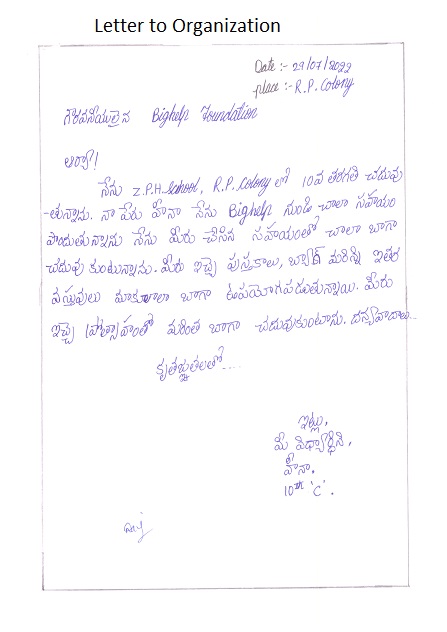 Letter to Organization
Date :- 29/07/2022
place :- R.P. Colony
గౌరవనీయులైన Bighelp Foundation
ఆర్యా!
నేను Z.P.H. School, R.P. Colony లో 10వ తరగతి చదువు
-తున్నాను. నా పేరు వీనా నేను Bighelp నుండి చాలా సహయం
పొందుతున్నాను నేను మీరు చేసిన సహయంతో చాలా బాగా
చదువు కుంటున్నాను. మీరు ఇచ్చే పుస్తకాలు, బ్యాగ్ మరిన్ని ఇతర
వస్తువులు మాకు చాలా బాగా ఉపయోగపడుతున్నాయి. మీరు
ఇచ్చే ప్రోత్సాహంతో మరింత బాగా చదువుకుంటాను. దన్యవాదాలు...
కృతజ్ఞతలతో....
ఇట్లు,
మీ విధ్యార్థిని,
వీనా.
10th 'C'.